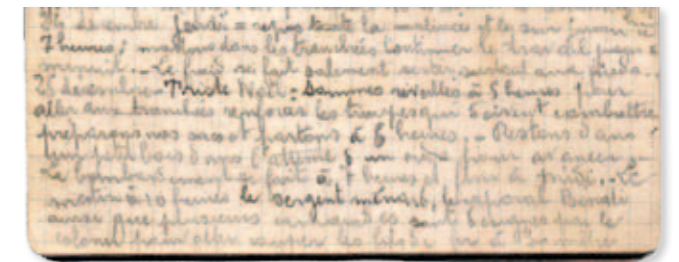 24 décembre jeudi = repos toute la matinée et le soir jusqu'à
7 heures, mattons dans les tranchées continuer le travail jusqu'à
minuit. - Le froid se fait salement sentir surtout aux pieds.
25 décembre. Triste Noël = Sommes réveillés à 5 heures pour
aller aux tranchées renforcer les troupes qui doivent combattre
préparons nos sacs et partons à 6 heures - Restons dans
un petit bois dans l'attente d'un ordre pour avancer
Le bombardement se fait à 7 heures et plus à midi. - Le
matin à 10 heures le sergent ménard, le caporal
ainsi que plusieurs sont désignés par le
colonel pour aller couper les fils de fer à